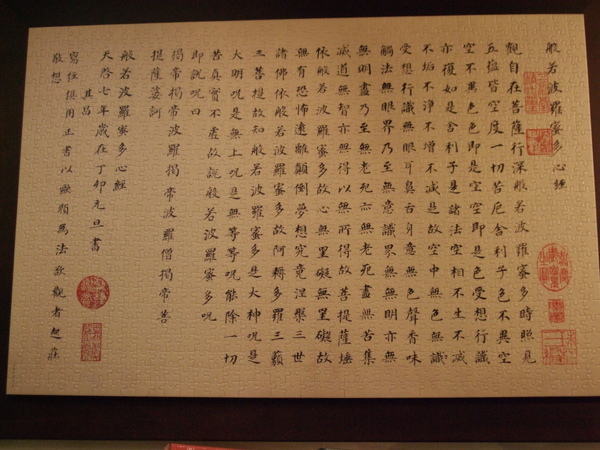 般若波羅蜜多心經
觀自在菩薩行深般若波羅蜜多時照見
五蘊皆空度一切苦厄舍利子色不異空
空不異色色即是空空即是色受想行識
亦復如是舍利子是諸法空相不生不滅
不垢不淨不增不減是故空中無色無
受想行識無眼耳鼻舌身意無色聲香味
觸法無眼界乃至無意識界無無明亦無
無明盡乃至無老死亦無老死盡無苦集
滅道無智亦無得以無所得故菩提薩埵
依般若波羅蜜多故心無罣礙無罣礙故
無有恐怖遠離顛倒夢想究竟涅槃三世
諸佛依般若波羅蜜多故阿耨多羅三藐
三菩提故知般若波羅蜜多是大神咒是
大明咒是無上咒是無等等咒能除一切
苦真實不虛故說般若波羅蜜多咒
即說咒曰
揭帝揭帝波羅揭帝波羅僧揭帝菩
提薩婆訶
般若波羅蜜多心經
天啓七年歲在丁卯元旦書
其昌
寫經俱用正書以歐顏為法欲觀者起莊
敬想